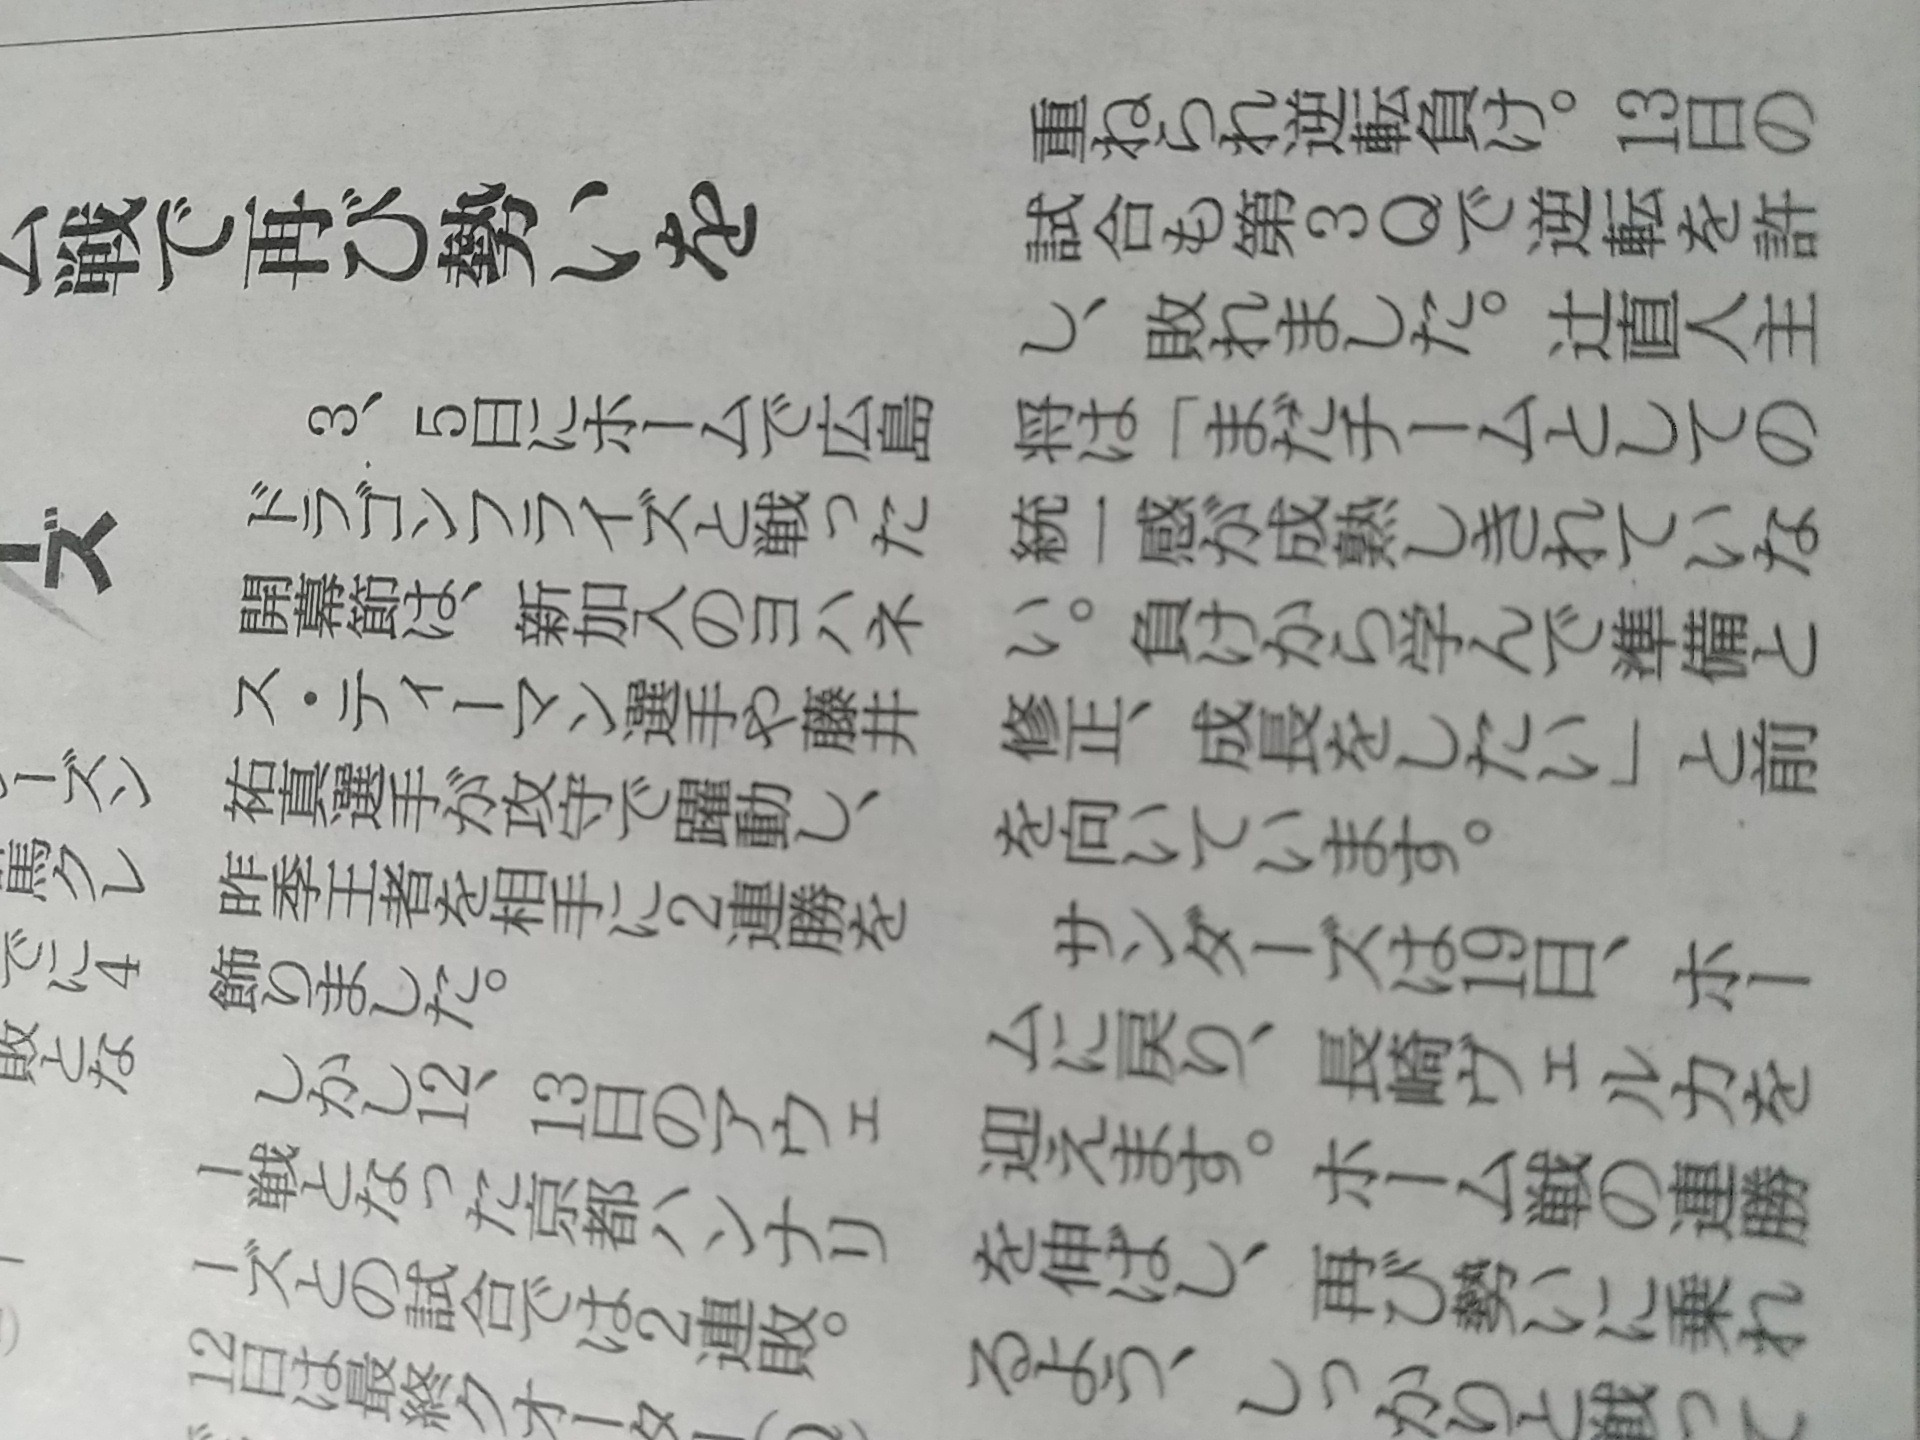 ム戦で再び勢いを
ーズ
ーズン
馬クレ
でに4
敗とな
3、5日にホームで広島
ドラゴンフライズと戦った
開幕節は、新加入のヨハネ
ス・ティーマン選手や藤井
祐真選手が攻守で躍動し、
昨季王者を相手に2連勝を
飾りました。
しかし12、13日のアウェ
ー戦となった京都ハンナリ
ーズとの試合では2連敗。
12日は最終クオーター(Q)
重ねられ逆転負け。13日の
試合も第3Qで逆転を許
し、敗れました。辻直人主
将は「まだチームとしての
統一感が成熟しきれていな
い。負けから学んで準備と
修正、成長をしたい」と前
を向いています。
サンダーズは19日、ホー
ムに戻り、長崎ヴェルカを
迎えます。ホーム戦の連勝
を伸ばし、再び勢いに乗れ
るよう、しっかりと戦って